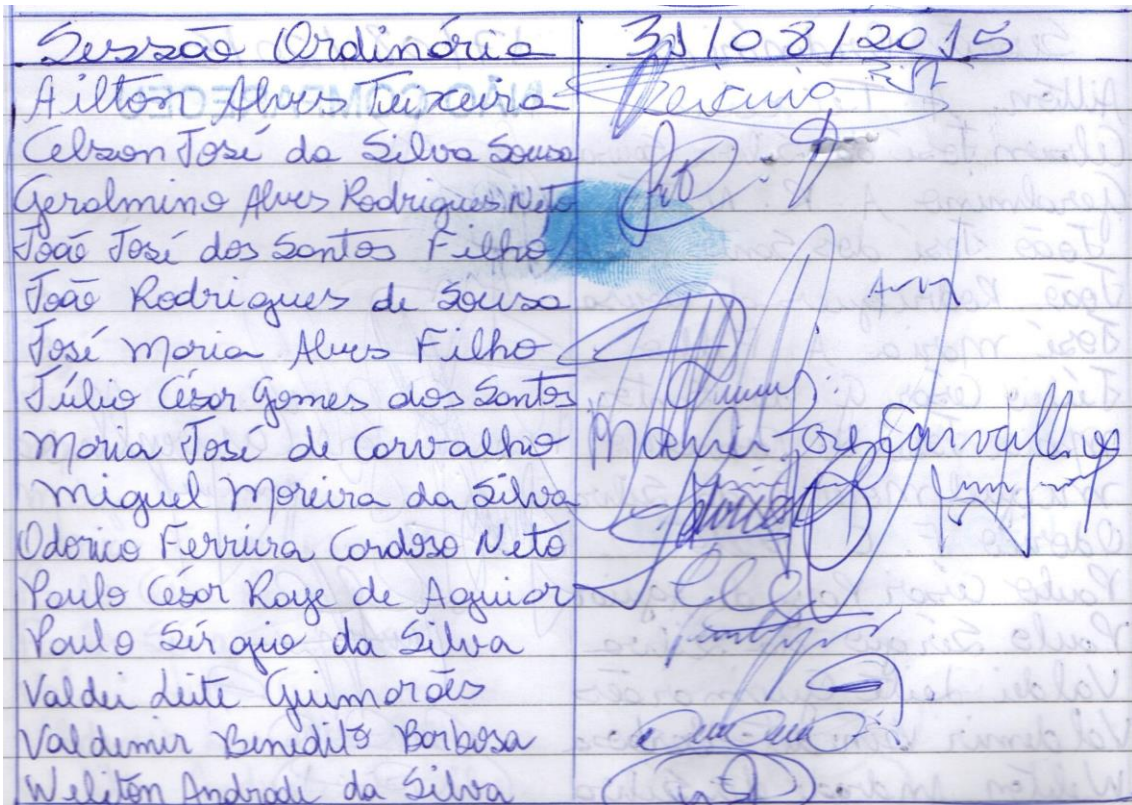 Sessão Ordinária 31/08/2015
Ailton Alves Teixeira Teixeira
Celson José da Silva Sousa
Geralmino Alves Rodrigues Neto
João José dos Santos Filho
João Rodrigues de Sousa
José Maria Alves Filho
Túlio César Gomes dos Santos
Maria José de Carvalho Maria José Carvalho
Miguel Moreira da Silva
Odorico Ferreira Cardoso Neto
Paulo César Raye de Aguiar
Paulo Sérgio da Silva
Valdei Leite Guimarães
Valdemir Benedito Barbosa
Weliton Andrade da Silva